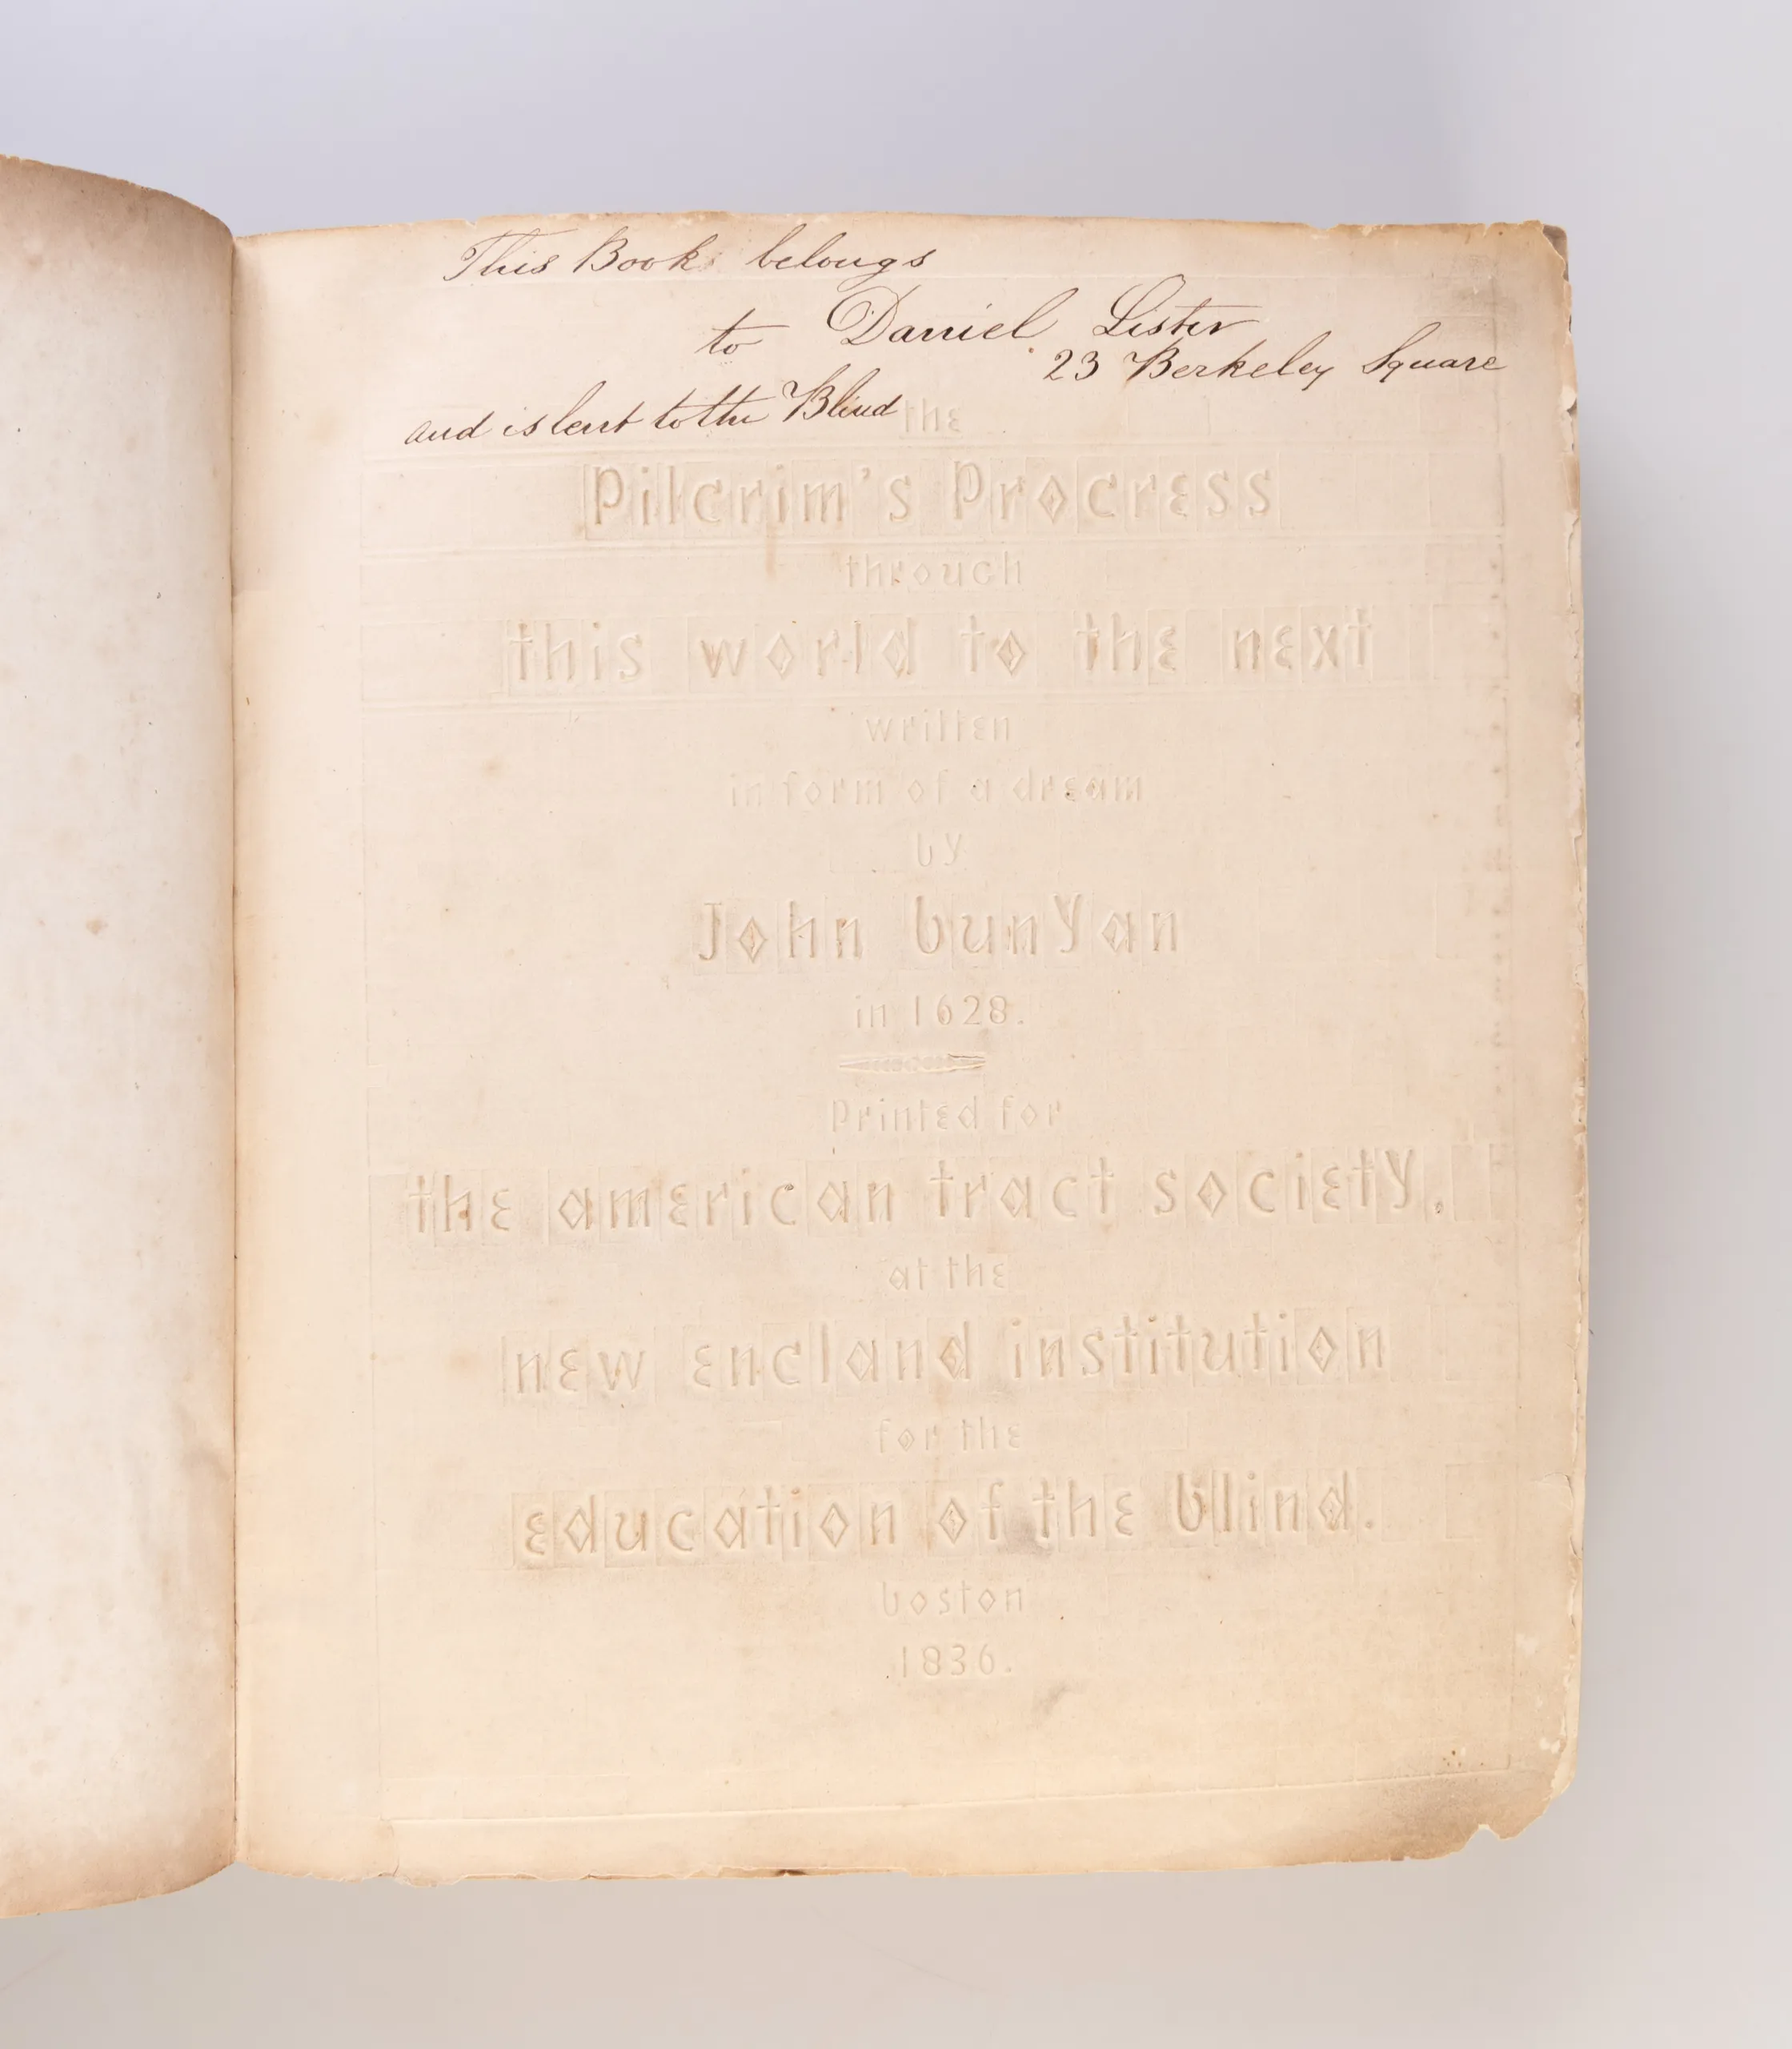 This Book belongs
to Daniel Lister
23 Berkeley Square
and is lent to the Blind
the
Pilgrim's Progress
through
this world to the next
written
in form of a dream
by
John bunyan
in 1628.
Printed for
the american tract society.
at the
new england institution
for the
education of the blind.
boston
1836.